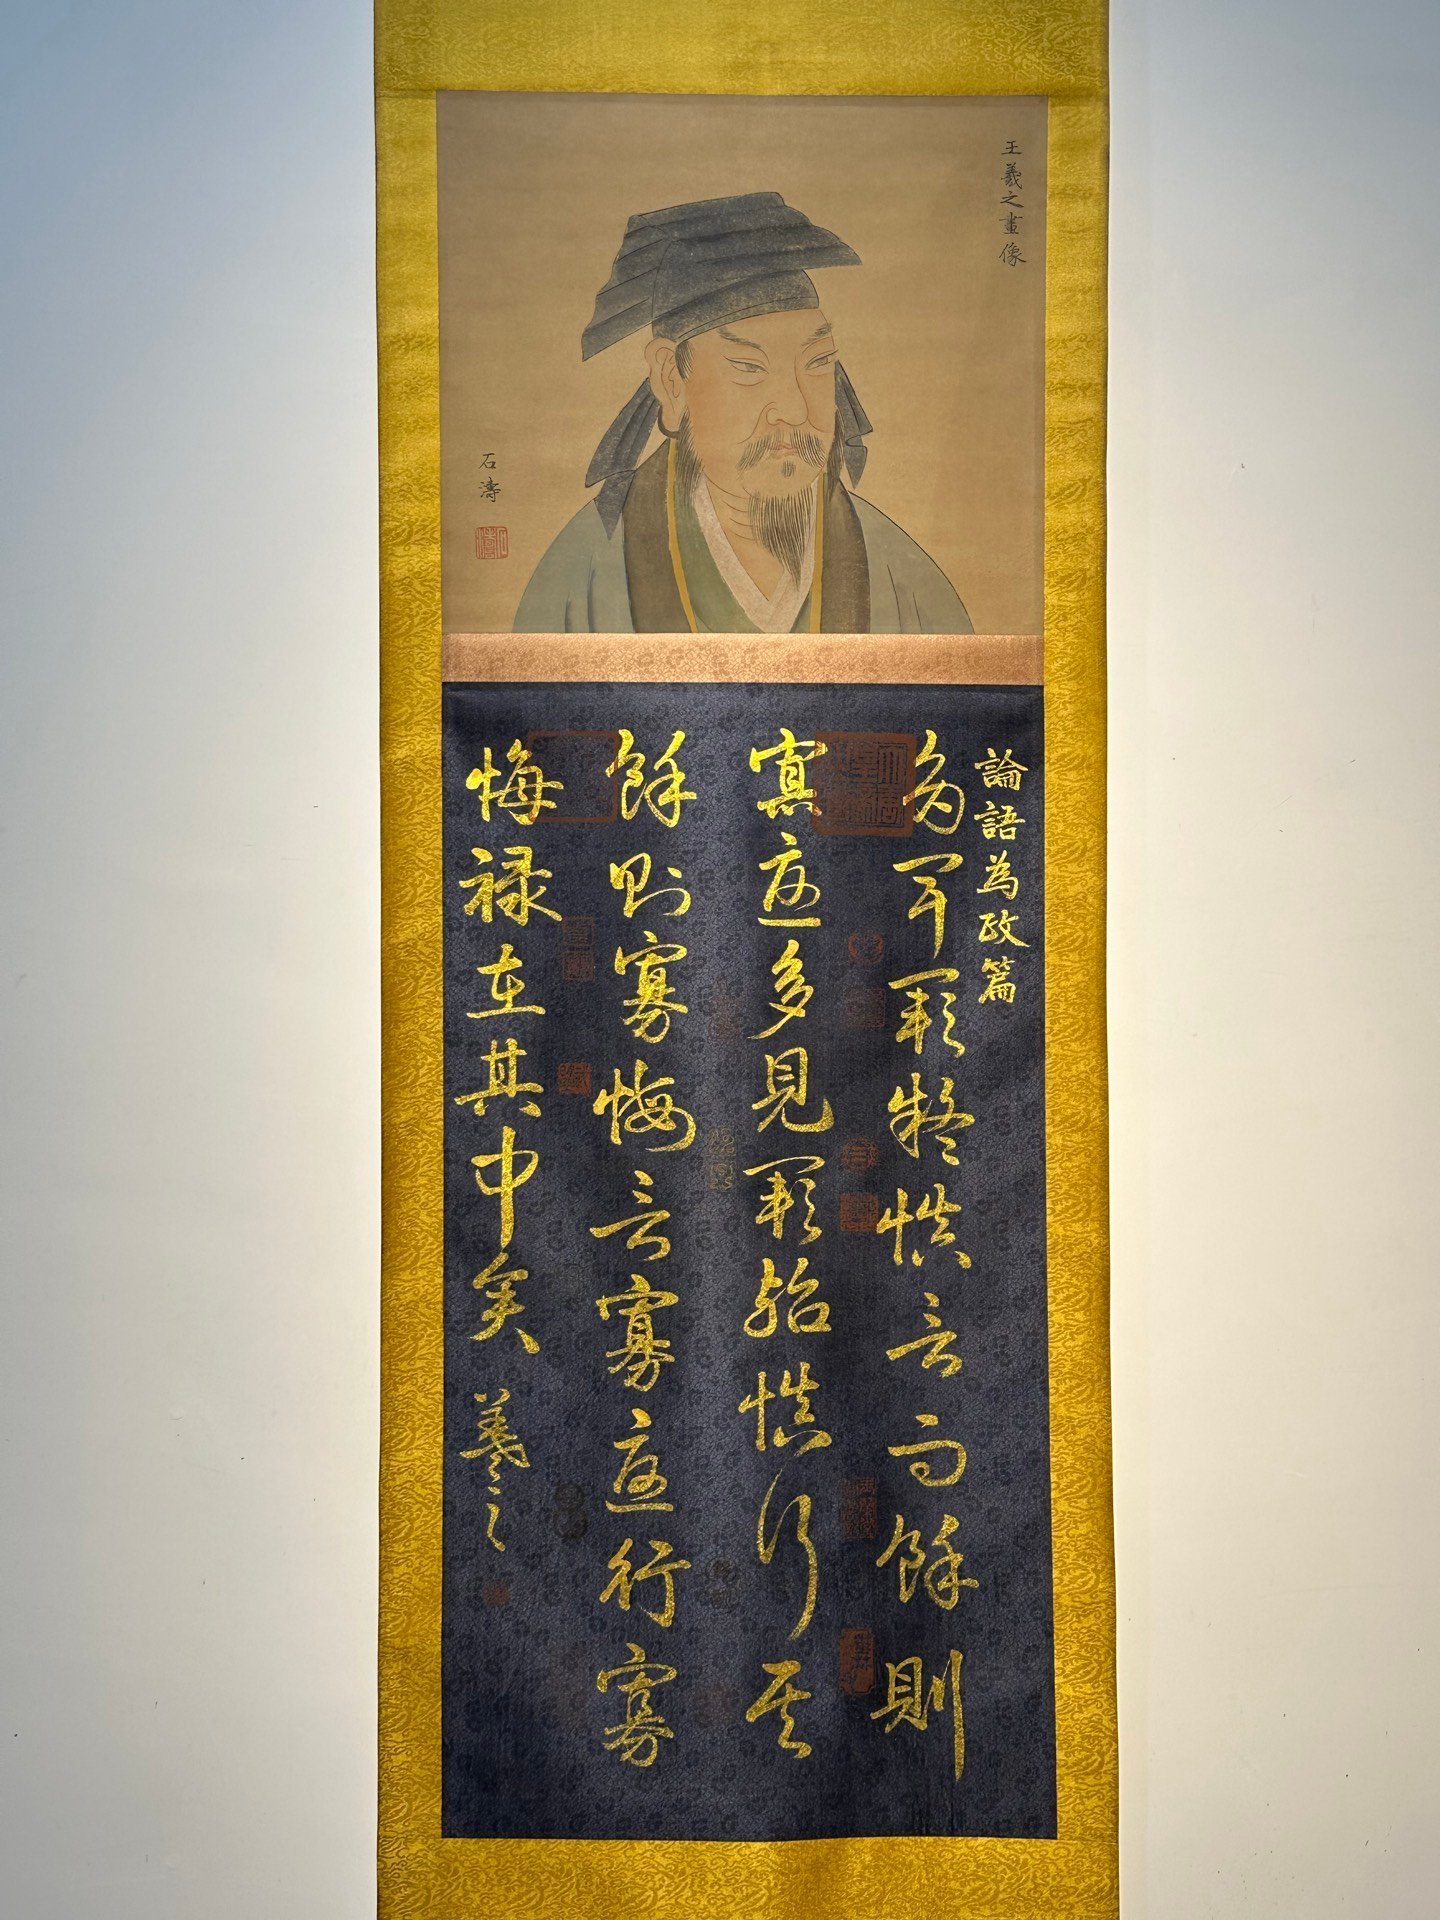 王羲之畫像
石濤
論語為政篇
多聞闕疑慎言其餘則
寡尤多見闕殆慎行其
餘則寡悔言寡尤行寡
悔禄在其中矣
羲之